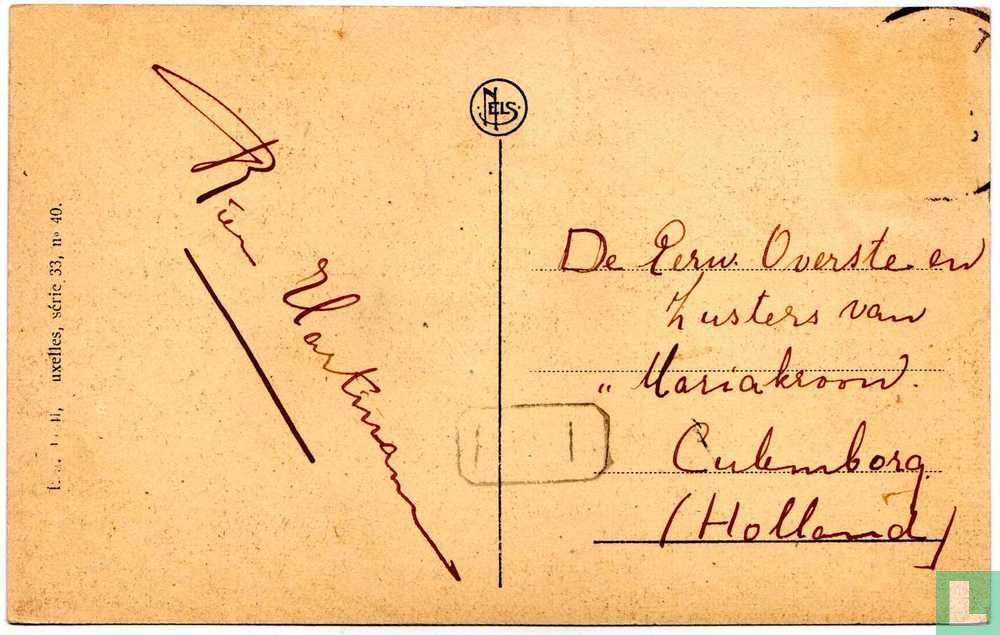 uxelles, série 33, nº 40.
Rien Hartmann
NELS
De Eerw. Overste en
Zusters van
„ Mariakroon.
Culemborg
(Holland)
L